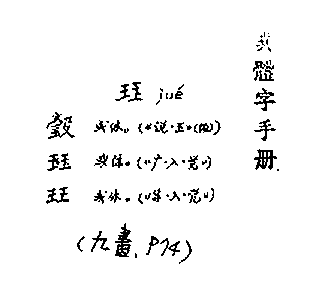 或體字手册.
珏 jué
瑴 或体。(《说·玉》(段))
珏 或体。(《广·入·觉》)
玨 或体。(《集·入·觉》)
(九畫, P74)